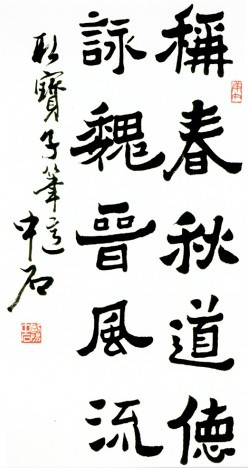 稱春秋道德
詠魏晉風流
取寶子筆意中石